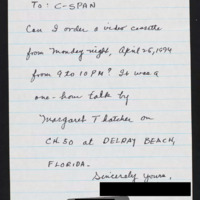 To: C-SPAN
Can I order a video cassette
from Monday night, April 25, 1994
from 9 to 10 PM? It was a
one-hour talk by
Margaret Thatcher on
CH.50 at DELRAY BEACH,
FLORIDA.
Sincerely yours,